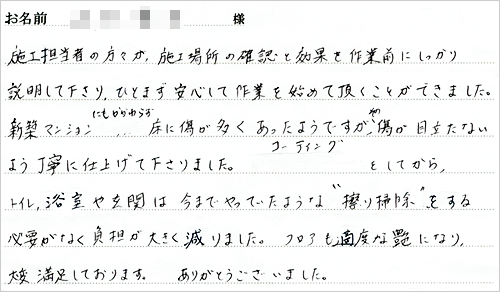 お名前 様
施工担当者の方々が、施工場所の確認と効果を作業前にしっかり
説明して下さり、ひとまず安心して作業を始めて頂くことができました。
にもかかわらず
新築マンション... 床に傷が多くあったようですが、その傷が目立たない
よう丁寧に仕上げて下さりました。 コーティングをしてから、
トイレ、浴室や玄関は今までやっていたような"擦り掃除"をする
必要がなく負担が大きく減りました。フロアも適度な艶になり、
大変満足しております。 ありがとうございました。